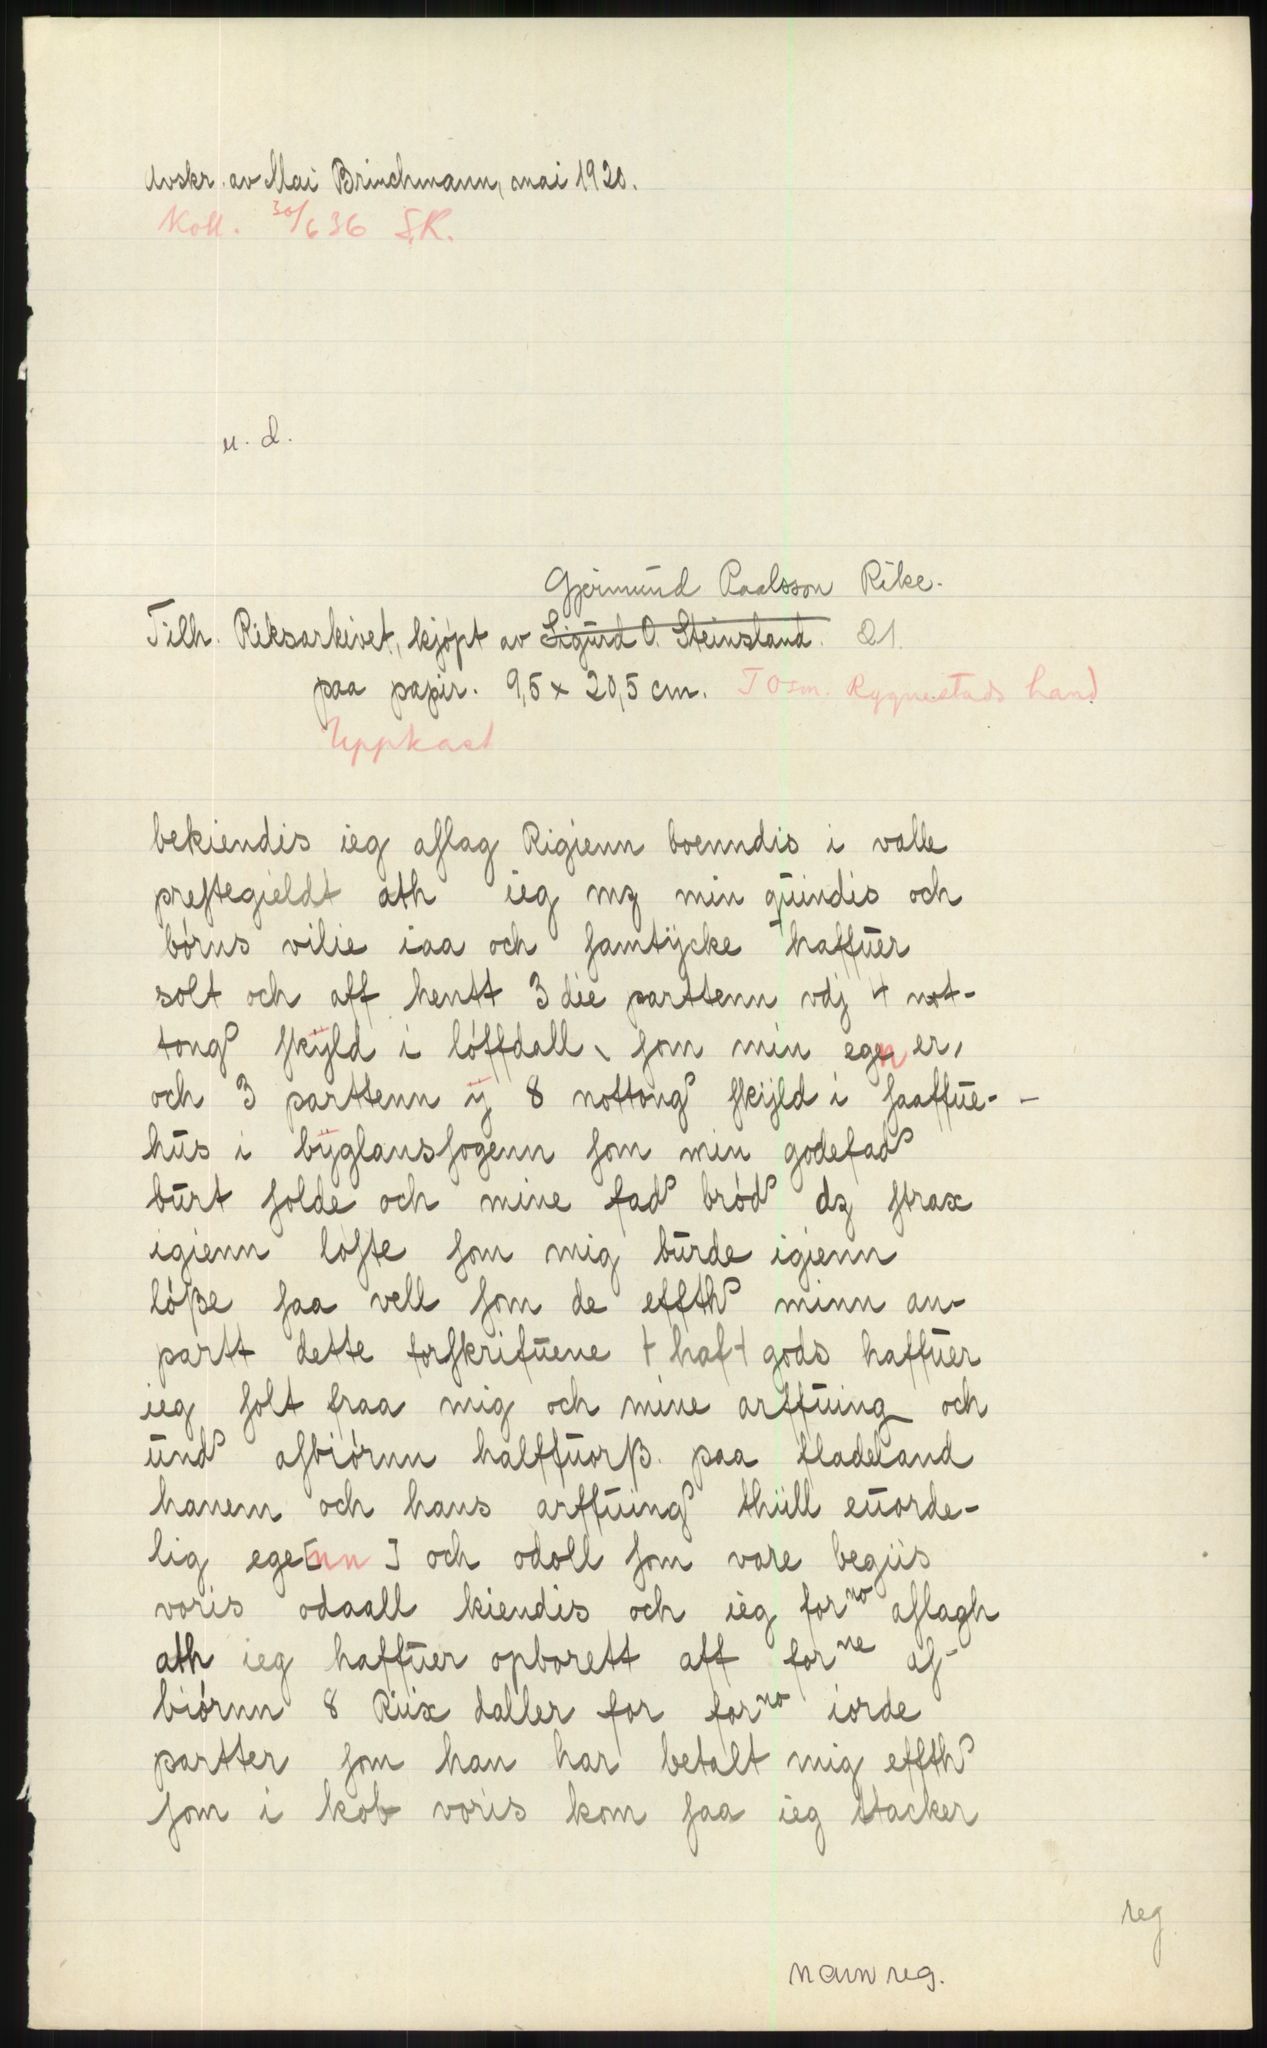 Avskr. av Mai Brinchmann, mai 1920.
Koll. 30/6 36 S.K.
u. d.
Gjermund Paalsson Rike.
Tilh. Riksarkivet, kjøpt av Sigurd O. Steinsland. 21.
paa papir. 9,5 x 20,5 cm. T Osm. Rygnestads hand
Uppkast
bekiendis ieg aslag Rigienn boenndis i valle
prestegieldt ath ieg mz min quindis och
børns vilie iaa och samtÿcke haffuer
solt och aff hentt 3 die parttenn vdj 4 not-
tong skÿld i løffdall, som min egen er,
och 3 parttenn ÿ 8 nottong skÿld i saaffue-
hus i bÿglanssogenn som min godefad
burt solde och mine fad brød dz strax
igienn løste som mig burde igienn
løße saa vell som de effth minn an-
partt dette forskrifuene + haf + gods haffuer
ieg solt fraa mig och mine arffuing och
und asbiørnn halffuorß. paa fladeland
hanem och hans arffuing thiill euorde-
lig ege[nn] och odoll som vore begiis
voris odaall kiendis och ieg for no aslagh
ath ieg haffuer opborett aff for ne as-
biørnn 8 Riix daller for for no iorde
partter som han har betalt mig effth
som i kob voris kom saa ieg tacker
reg
navnreg.